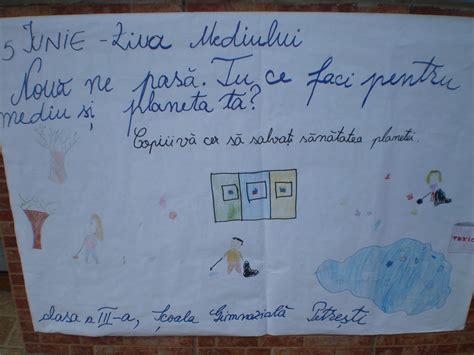 5 IUNIE - Ziua Mediului
Nouă ne pasă. Tu ce faci pentru
mediu și planeta ta?
Copiii vă cer să salvați sănătatea planetei.
TOXIC
clasa a III-a, Școala Gimnazială Petrești